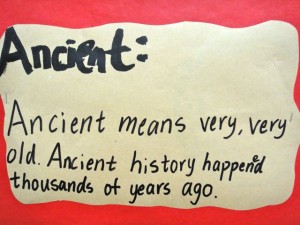 Ancient:
Ancient means very, very
old. Ancient history happened
thousands of years ago.